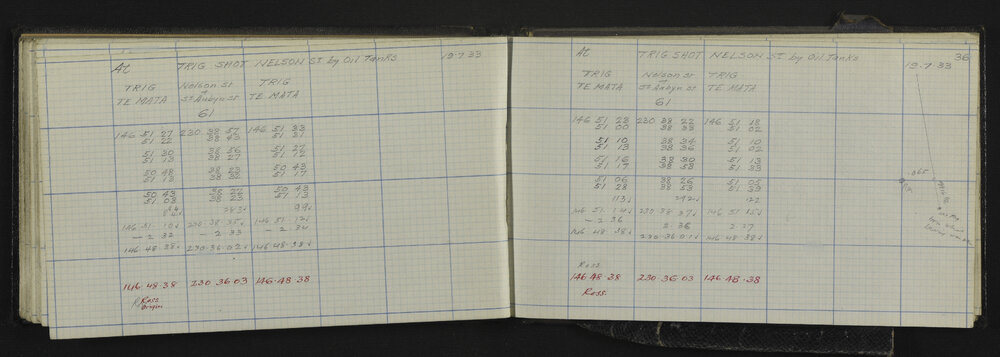 At TRIG SHOT NELSON ST by Oil Tanks 19.7.33
TRIG Nelson St TRIG
TE MATA St Aubyn St TE MATA
61
146 51 27 230 38 57 146 51 33
51 22 38 43 51 31
51 30 38 56 51 27
51 13 38 27 51 12
50 48 38 23 50 43
51 13 38 53 51 17
50 43 38 22 50 43
51 03 38 23 51 13
283 99
146 51 10 230 38 35 146 51 12
- 2 32 - 2 33 - 2 34
146 48 38 230.36.02 146 48.38
146.48.38 230.36.03 146.48.38
Ross
Origin
At TRIG SHOT NELSON ST by Oil Tanks 19.7.33 36
TRIG Nelson St TRIG
TE MATA St Aubyn St TE MATA
61
146 51 28 230 38 22 146 51 18
51 00 38 38 51 02
51 10 38 34 51 10
51 13 38 36 51 02
51 16 38 30 51 13
51 17 38 53 51 33
51 06 38 26 51 05
51 28 38 53 51 33
113 292 122
146 51 14 230 38 37 146 51 15
- 2 36 2 36 2 37
146 48 38 230.36.01 146.48.38
Ross
146.48.38 230.36.03 146.48.38
Ross